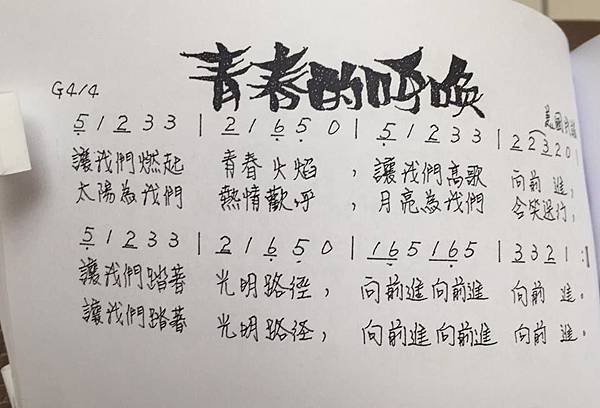 青春的呼喚
G4/4
美國民謠
5 1 2 3 3 | 2 1 6 5 0 | 5 1 2 3 3 | 2 2 3 2 0 |
讓我們燃起 青春火焰 , 讓我們高歌 向前 進 ,
太陽為我們 熱情歡呼 , 月亮為我們 含笑送行 ,
5 1 2 3 3 | 2 1 6 5 0 | 1 6 5 1 6 5 | 3 3 2 1 :‖
讓我們踏著 光明路徑 , 向前進向前進 向前 進 。
讓我們踏著 光明路徑 , 向前進向前進 向前 進 。